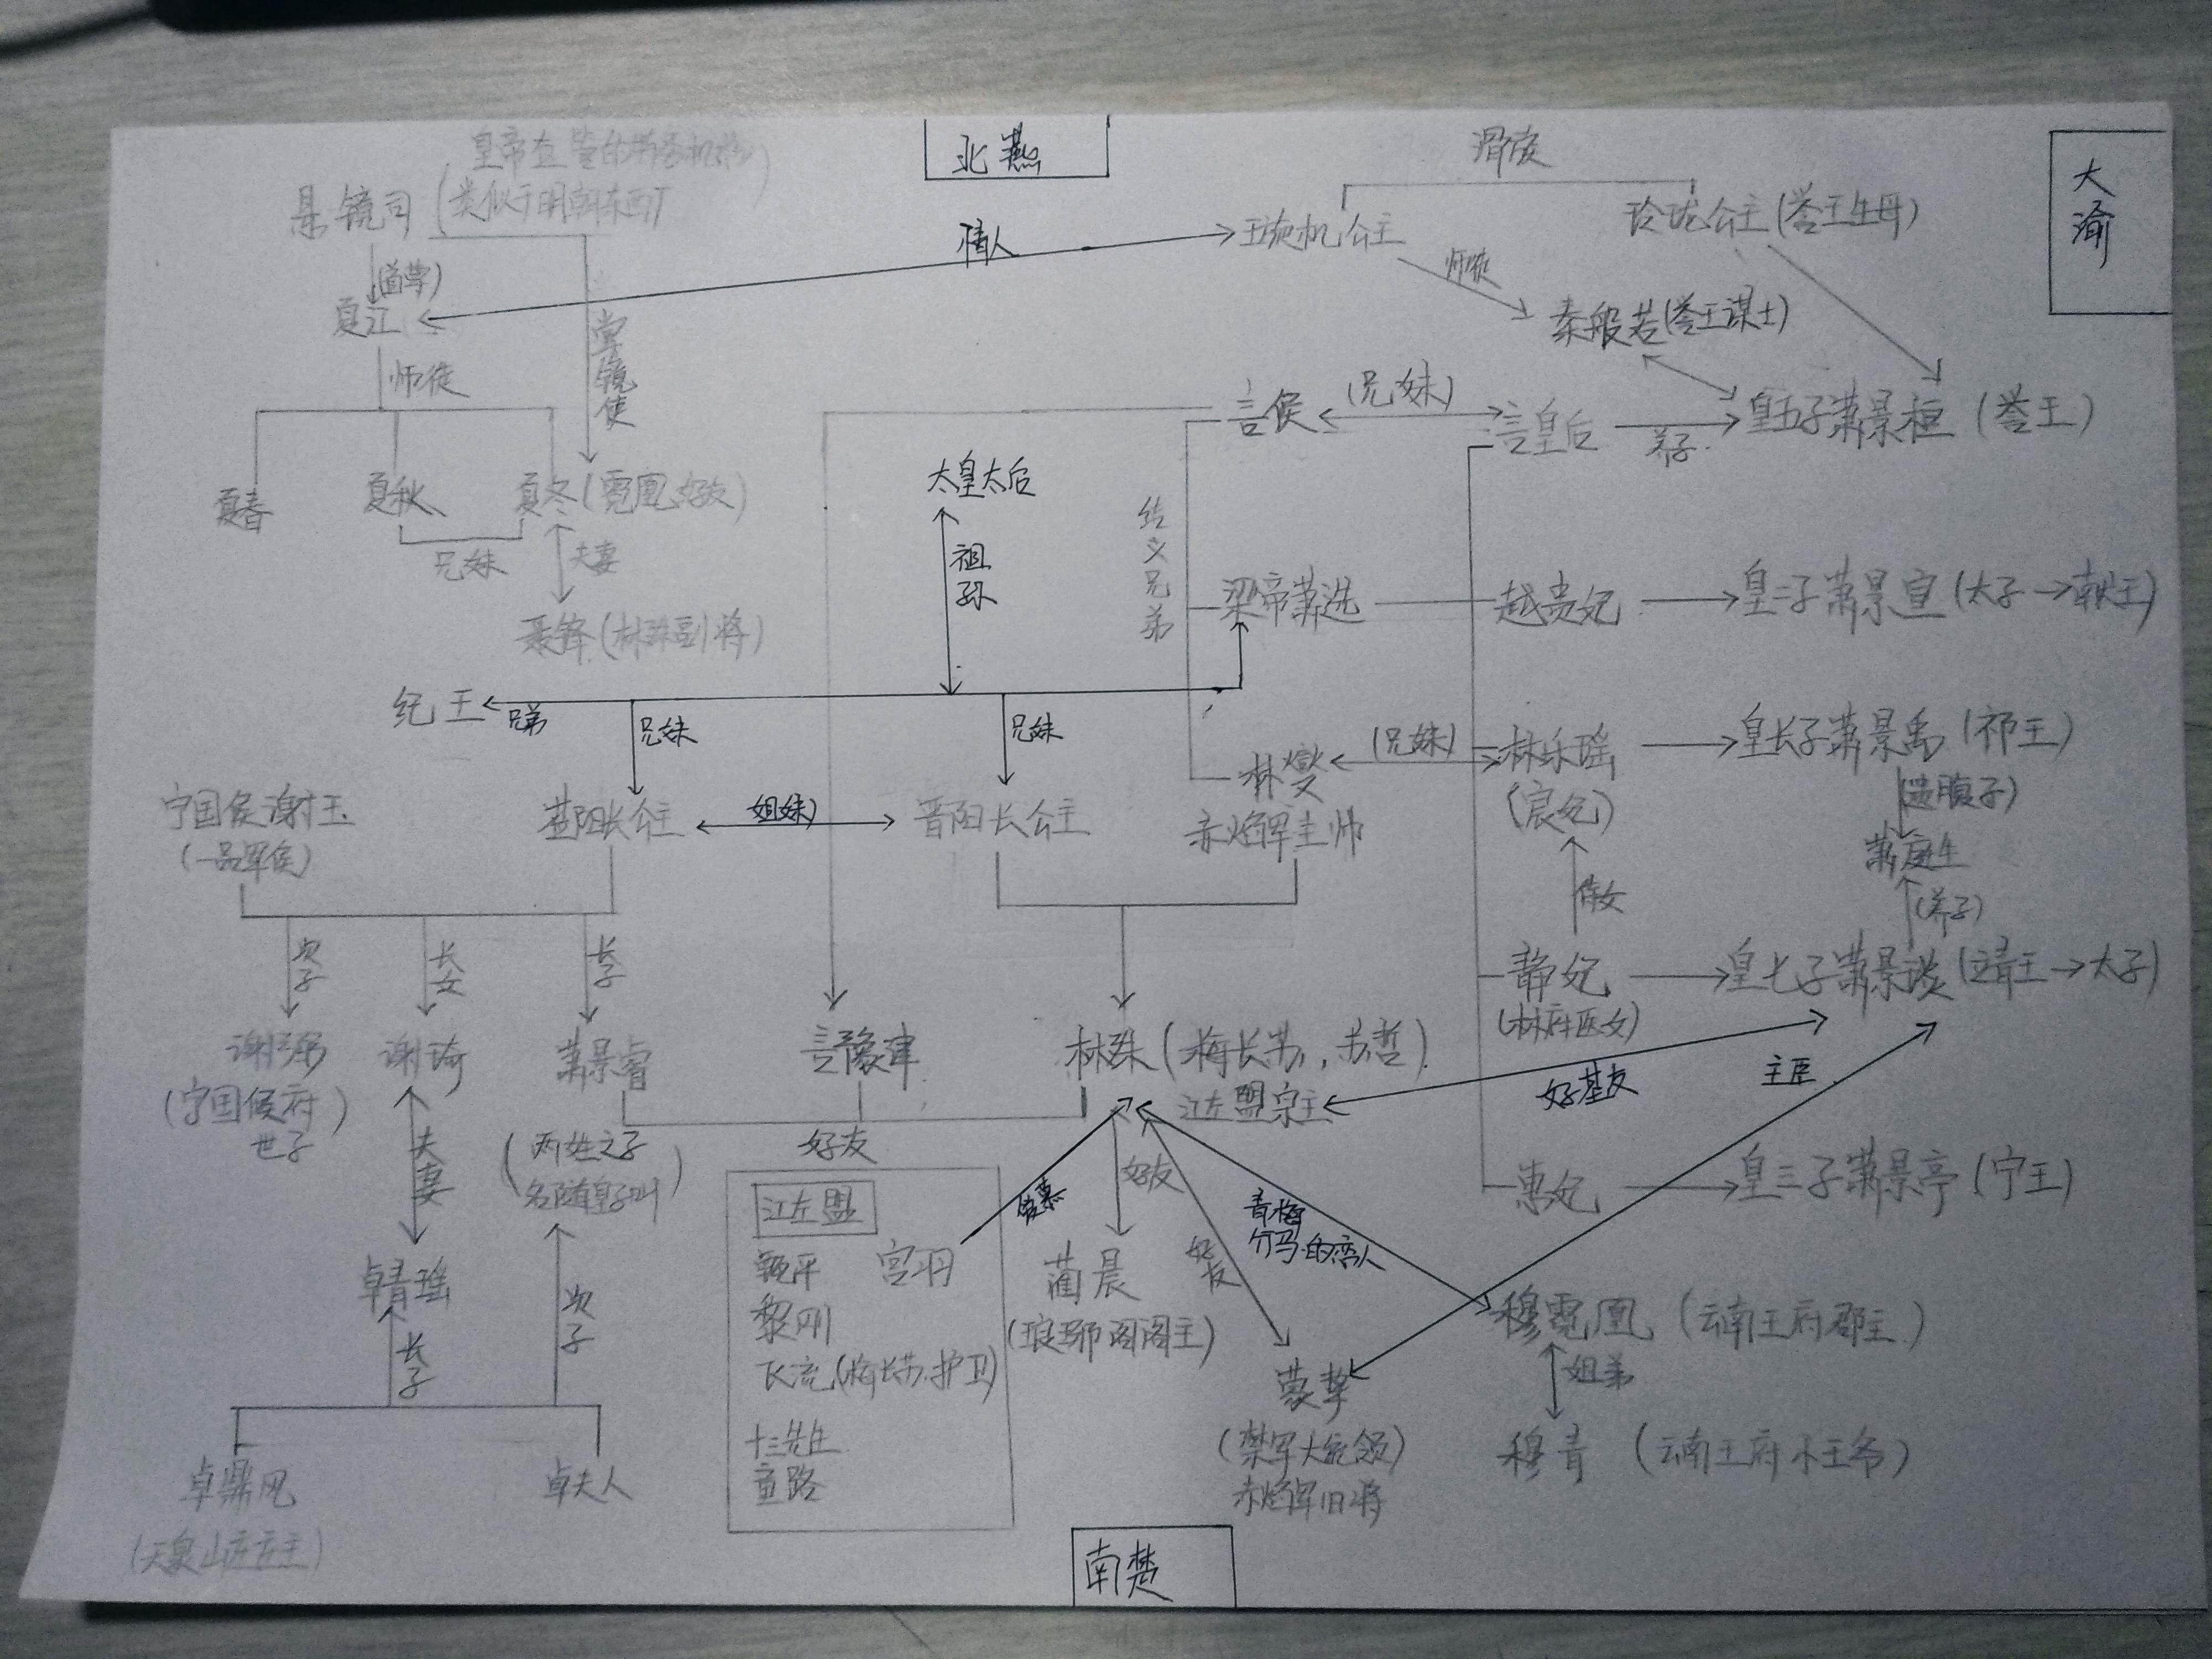 北燕
滑族
大
渝
皇帝直
悬镜司
(类似于明朝东西厂
情人
璇机公主
玲珑公主(誉王生母)
师徒
(首尊)
夏江
掌
镜
使
秦般若(誉王谋士)
师徒
言侯
(兄妹)
言皇后
养子
皇五子萧景桓(誉王)
太皇太后
夏春
夏秋
夏冬(霓凰好友)
兄妹
夫妻
祖
孙
结
义
兄
弟
梁帝萧选
越贵妃
皇二子萧景宣(太子→献王)
聂锋(林殊副将)
纪王
兄弟
兄妹
兄妹
林燮
(兄妹)
林乐瑶
(宸妃)
皇长子萧景禹(祁王)
(遗腹子)
萧庭生
(养子)
宁国侯谢玉
(一品军侯)
莅阳长公主
姐妹
晋阳长公主
赤焰军主帅
侍女
次
子
长
女
长
子
静妃
(林府医女)
皇七子萧景琰(靖王→太子)
谢弼
(宁国侯府)
世子
谢琦
萧景睿
言豫津
林殊(梅长苏,苏哲)
江左盟宗主
好基友
主臣
夫
妻
(两姓之子
名随皇子叫)
好友
惠妃
皇三子萧景亭(宁王)
江左盟
甄平
宫羽
黎刚
飞流(梅长苏护卫)
十三先生
童路
爱慕
好友
好友
青梅
竹马的恋人
蔺晨
(琅琊阁阁主)
卓青瑶
长
子
次
子
穆霓凰(云南王府郡主)
姐弟
穆青(云南王府小王爷)
蒙挚
(禁军大统领)
赤焰军旧将
卓鼎风
(天泉山庄庄主)
卓夫人
南楚